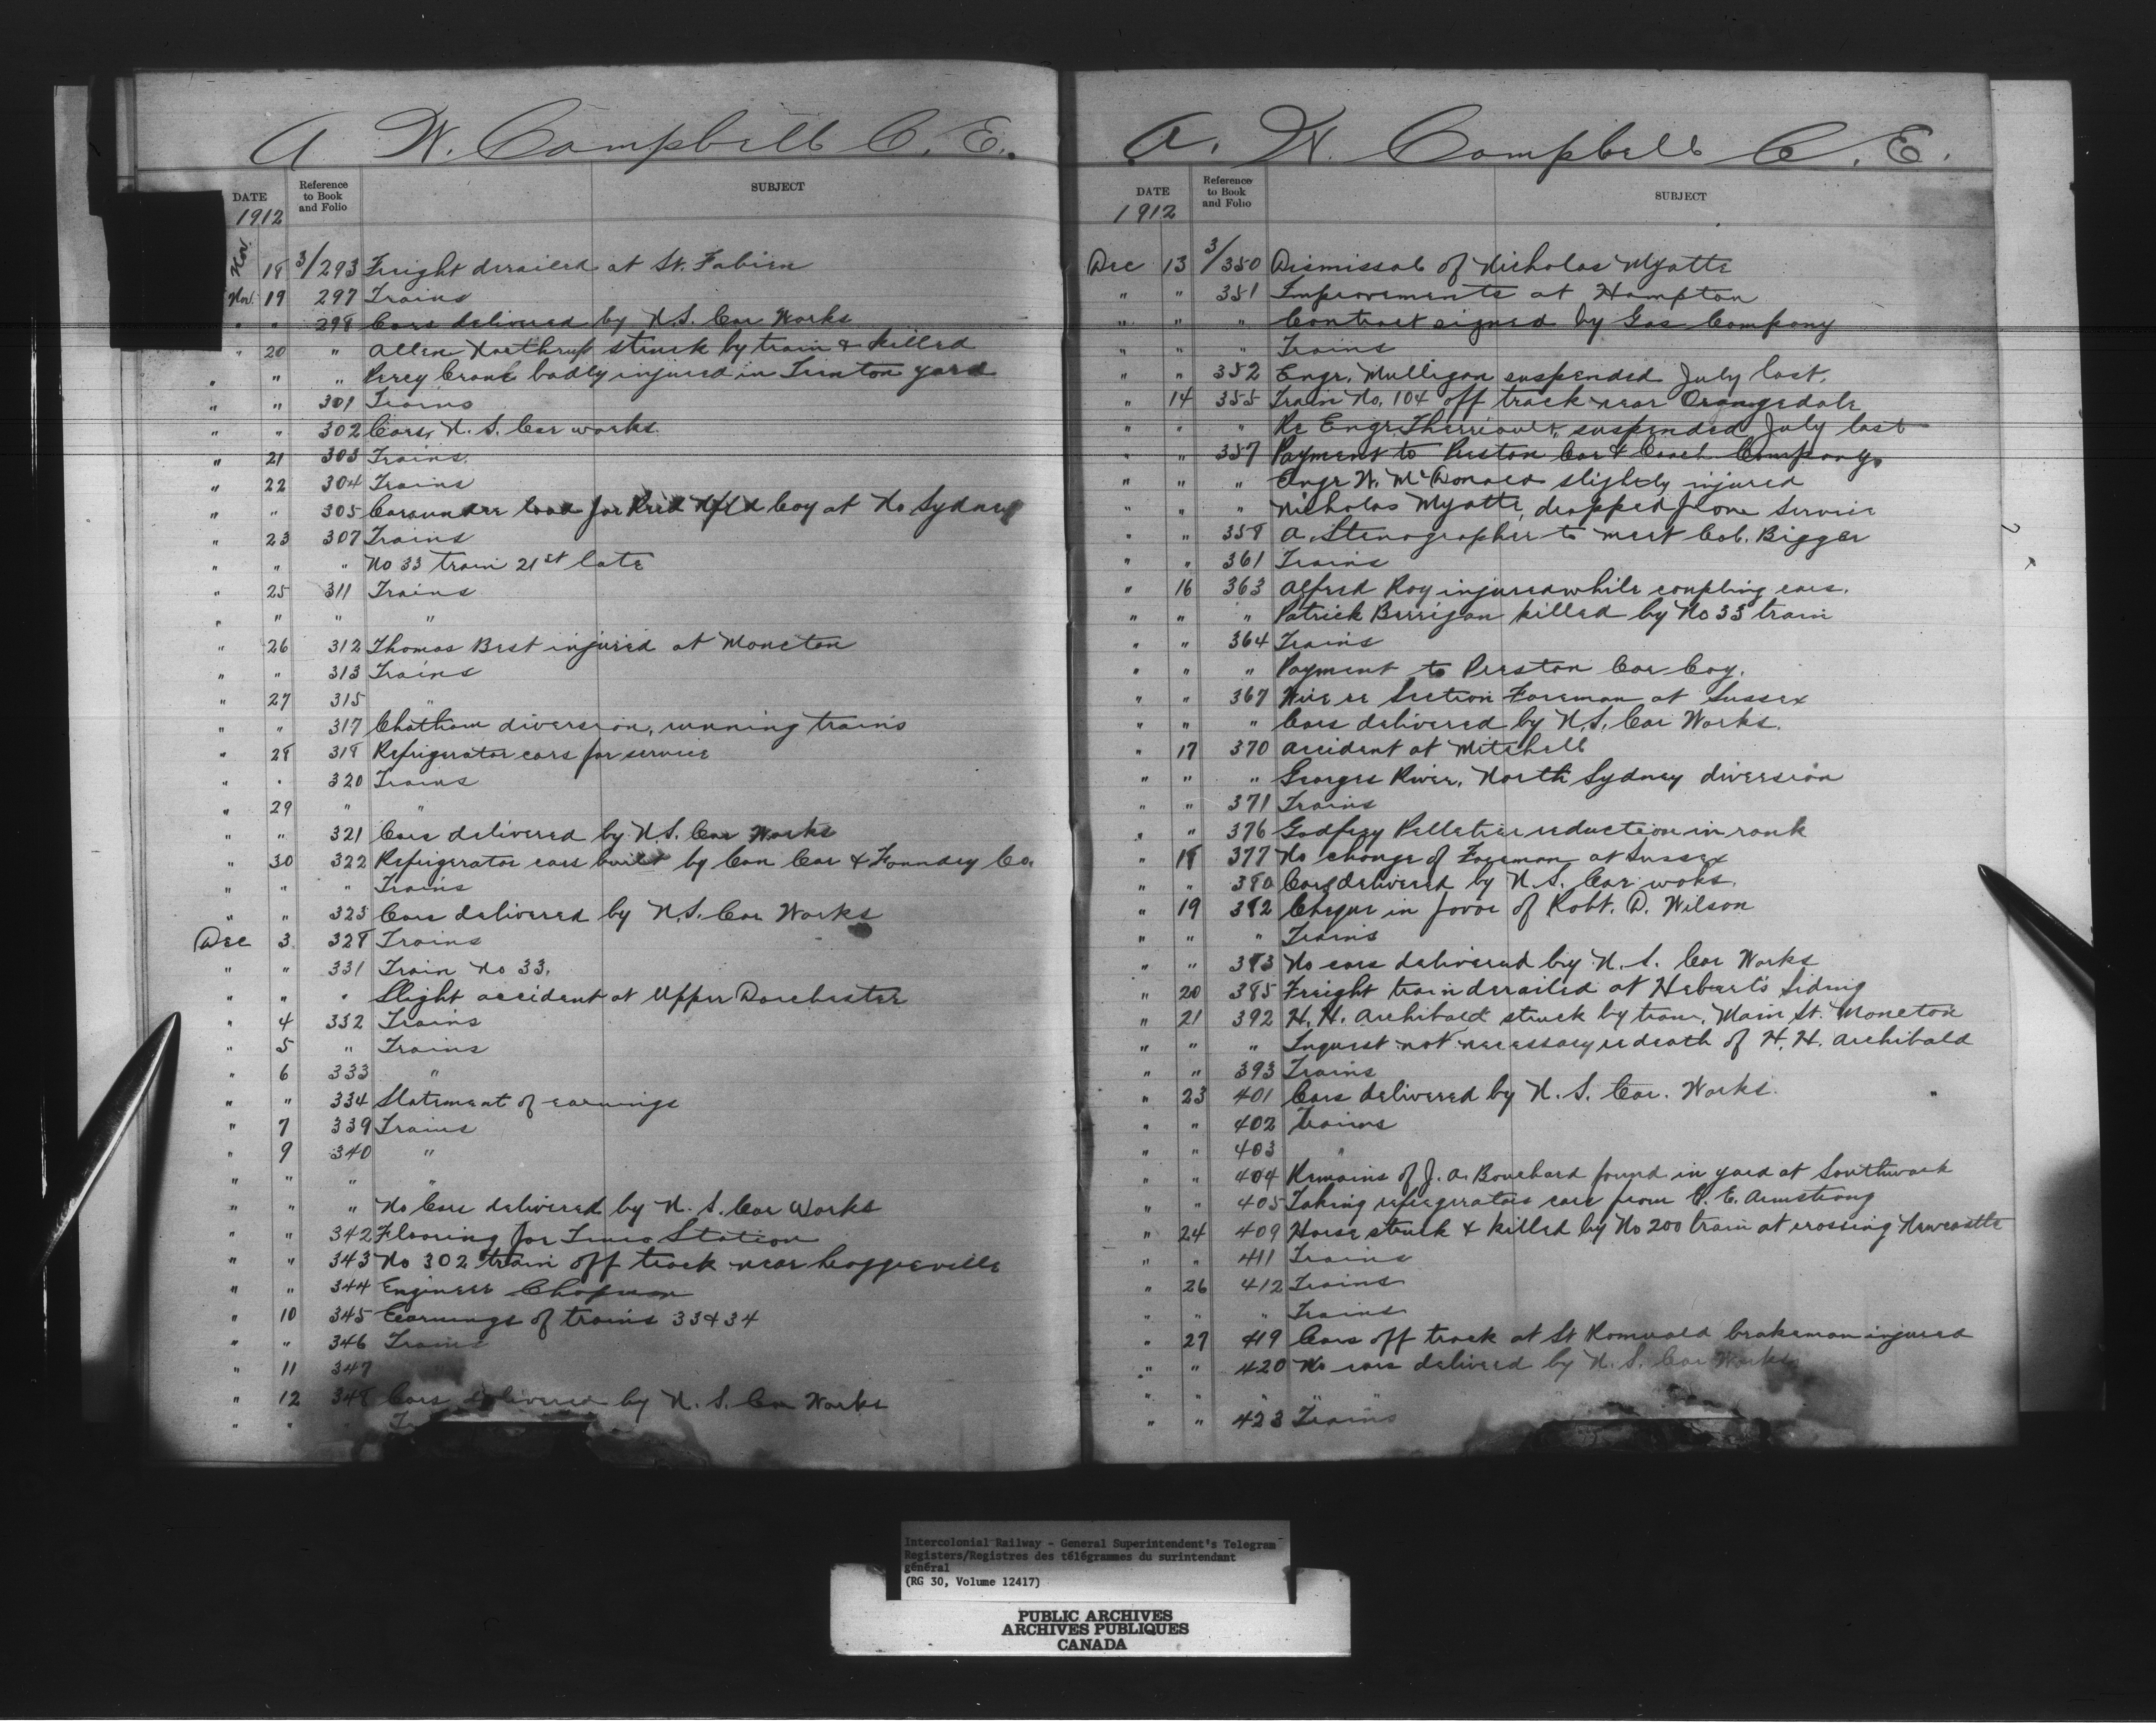 A W. Campbell C. E.
DATE Reference to Book and Folio SUBJECT
1912
Nov. 18 3/293 Freight derailed at St. Fabien
Nov. 19 297 Trains
" " 298 Cars delivered by N.S. Car Works
" 20 " Allen Northrup struck by train & killed
" " " Percy Crane badly injured in Trenton yard
" " 301 Trains
" " 302 Cars, N. S. Car works.
" 21 303 Trains.
" 22 304 Trains
" " 305 Cars under load for Reid Nfld Coy at No Sydney
" 23 307 Trains
" " " No 33 train 21st late
" 25 311 Trains
" " " "
" 26 312 Thomas Best injured at Moncton
" " 313 Trains
" 27 315 "
" " 317 Chatham diversion, running trains
" 28 318 Refrigerator cars for service
" " 320 Trains
" 29 " "
" " 321 Cars delivered by N.S. Car Works
" 30 322 Refrigerator cars built by Can Car & Foundry Co.
" " " Trains
" " 323 Cars delivered by N.S. Car Works
Dec 3 328 Trains
" " 331 Train No 33.
" " " Slight accident at Upper Dorchester
" 4 332 Trains
" 5 " Trains
" 6 333 "
" " 334 Statement of earnings
" 7 339 Trains
" 9 340 "
" " " "
" " " No Cars delivered by N. S. Car Works
" " 342 Flooring for Truro Station
" " 343 No 302 train off track near Loggieville
" " 344 Engineer Chapman
" 10 345 Earnings of trains 33 & 34
" " 346 Trains
" 11 347
" 12 348 Cars delivered by N. S. Car Works
" "
A. W. Campbell C. E.
DATE Reference to Book and Folio SUBJECT
1912
Dec 13 3/350 Dismissal of Nicholas Myatte
" " 351 Improvements at Hampton
" " " Contract signed by Gas Company
" " " Trains
" " 352 Engr. Mulligan suspended July last.
" 14 355 Train No. 104 off track near Orangedale
" " " Re Engr. Therriault, suspended July last
" " 357 Payment to Preston Car & Coach Company.
" " " Engr W. McDonald slightly injured
" " " Nicholas Myatte, dropped from service
" " 358 A Stenographer to meet Col. Bigger
" " 361 Trains
" 16 363 Alfred Roy injured while coupling cars.
" " " Patrick Berrigan killed by No 33 train
" " 364 Trains
" " " Payment to Preston Car Coy.
" " 367 Wire re Section Foreman at Sussex
" " " Cars delivered by N.S. Car Works.
" 17 370 Accident at Mitchell
" " " Georges River, North Sydney diversion
" " 371 Trains
" " 376 Godfrey Pelletier reduction in rank
" 18 377 No change of Foreman at Sussex
" " 380 Cars delivered by N. S. Car woks.
" 19 382 Cheque in favor of Robt. D. Wilson
" " " Trains
" " 383 No cars delivered by N. S. Car Works
" 20 385 Freight train derailed at Hebert's Siding
" 21 392 H. H. Archibald struck by train, Main St. Moncton
" " " Inquest not necessary re death of H. H. Archibald
" " 393 Trains
" 23 401 Cars delivered by N. S. Car. Works.
" " 402 Trains
" " 403 "
" " 404 Remains of J. A. Bouchard found in yard at Southwark
" " 405 Taking refregerators cars from C. E. Armstrong
" 24 409 Horse struck & killed by No 200 train at crossing Newcastle
" " 411 Trains
" 26 412 Trains
" " " Trains
" 27 419 Cars off track at St Romuald brakeman injured
" " 420 No cars delivered by N. S. Car Works
" " " " "
" " 423 Trains
Intercolonial Railway - General Superintendent's Telegram
Registers/Registres des télégrammes du surintendant
général
(RG 30, Volume 12417)
PUBLIC ARCHIVES
ARCHIVES PUBLIQUES
CANADA